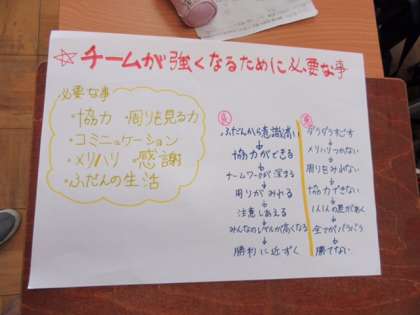 ☆チームが強くなるために必要な事
必要な事
・協力 ・周りを見る力
・コミニュケーション
・メリハリ ・感謝
・ふだんの生活
良
ふだんから意識高い
↓
協力ができる
↓
チームワークが深まる
↓
周りがみれる
↓
注意しあえる
↓
みんなのレベルが高くなる
↓
勝利に近ずく
悪
ダラダラすごす
↓
メリハリつかない
↓
周りをみれない
↓
協力できない
↓
↓
全てがバラバラ
↓
勝てない